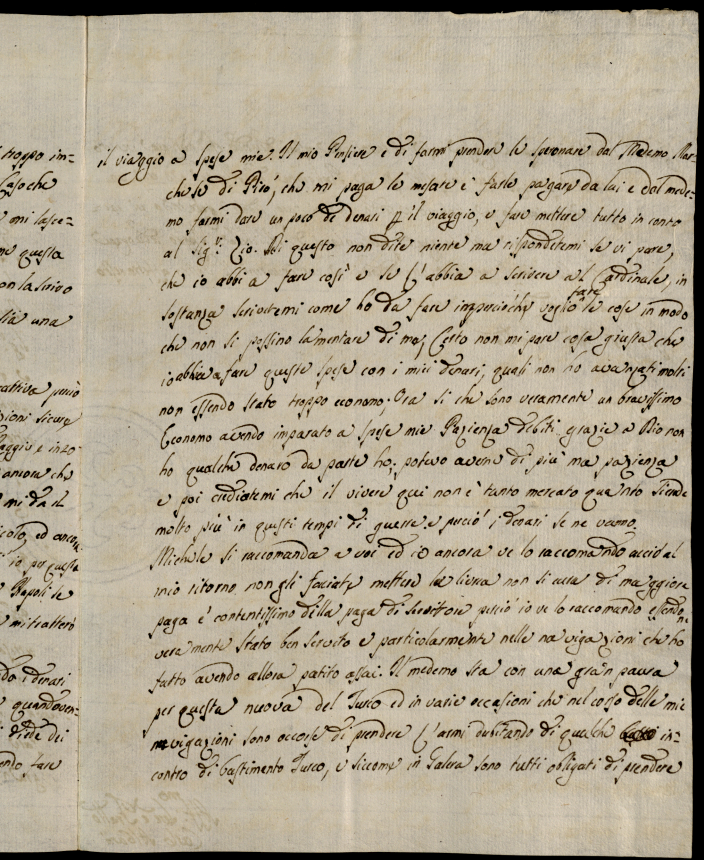 troppo im=
Caso che
mi lasce=
questa
una
cattiva perciò
sicura
ancora che
mi dà il
ed ancora
io per questa
Napoli le
mi tratterò
denari
quando ven=
diede dei
fare
il viaggio a spese mie. Il mio Pensiere è di farmi prendere le speronare dal Medemo Mar=
chese di Pirò, che mi paga le mesate e farle pagare da lui e dal mede=
mo farmi dare un poco di denari p il viaggio, e fare mettere tutto in conto
al Sig.r Zio. Di questo non dite niente ma rispondetemi se vi pare,
che io abbi a fare così e se l'abbia a scrivere al Cardinale, in
sostanza scrivetemi come ho da fare imperciòche voglio fare le cose in modo
che non si possino lamentare di me; Certo non mi pare cosa giusta che
io abbia a fare queste spese con i miei denari, quali non ho avanzati molti
non essendo stato troppo economo; Ora si che sono veramente un bravissimo
Economo avendo imparato a spese mie Pazienza debiti grazie a Dio non
ho qualche denaro da parte ho; potevo averne di più ma pazienza
e poi crediatemi che il vivere qui non è tanto mercato quanto si crede
molto più in questi tempi di guerre e perciò i denari se ne vanno.
Michele si raccomanda a voi ed io ancora ve lo raccomando acciò al
mio ritorno non gli faciate mettere la livrea non si cura di maggiore
paga è contentissimo della paga di Servitore perciò io ve lo raccomando essendo=
ne
veramente stato ben servito e particolarmente nelle navigazioni che ho
fatto avendo allora patito assai. Il medemo sta con una gran paura
per questa nuova del Turco ed in varie occasioni che nel corso delle mie
navigazioni sono occorse di prendere l'armi dubitando di qualche in=
contro di bastimento Turco, e siccome in Galera sono tutti obligati di prendere